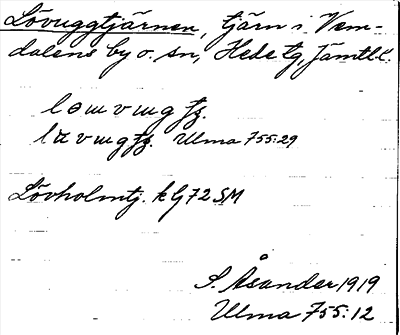 Lövuggtjärnen, tjärn i Vem-
dalens by o. sn, Hede tg, Jämtl. l.
Ulma 755:29
Lövholmtj. k G72 SM
S. Åsander 1919
Ulma 755:12